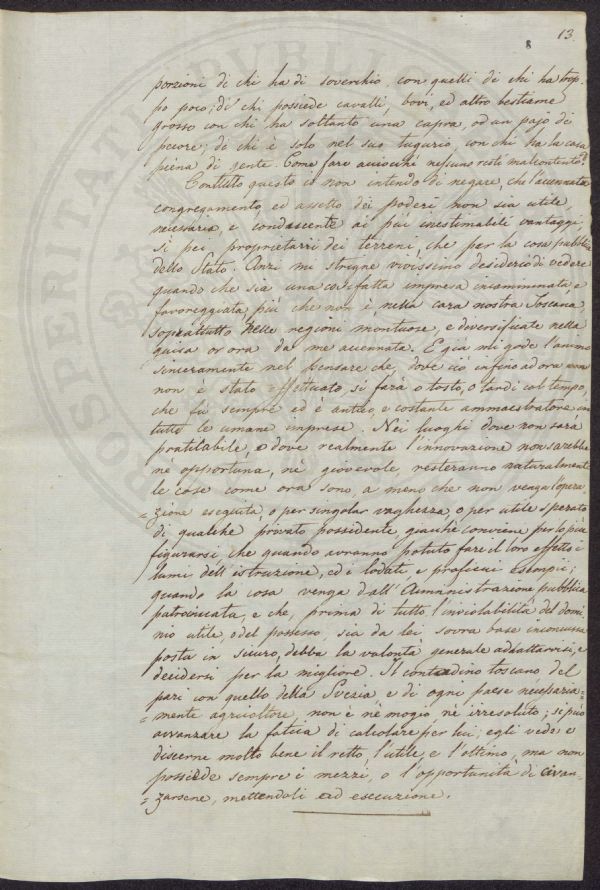 13.
8
porzioni di chi ha di soverchio, con quelli di chi ha trop-
po poco; di chi possiede cavalli, bovi, ed altro bestiame
grosso con chi ha soltanto una capra, od un pajo di
pecore; di chi è solo nel suo tugurio, con chi ha la casa
piena di gente. Come fare acciocchè nessuno resti malcontento?
Contutto questo io non intendo di negare, che l'accennata
congregamento, ed assetto dei poderi non sia utile,
necessaria, e condascente ai più inestimabili vantaggi
sì pei proprietarii dei terreni, che per la cosa pubblica
dello Stato. Anzi mi strigne vivissimo desiderio di vedere
quando che sia una cosiffatta impresa incamminata, e
favoreggiata più che non è, nella cara nostra Toscana,
soprattutto nelle regioni montuose, e diversificate nella
guisa or ora da me accennata. E già mi gode l'animo
sinceramente nel pensare che, dove ciò infino ad ora
non è stato effettuato, si farà o tosto, o tardi col tempo,
che fu sempre ed è antico, e costante ammaestratore in
tutte le umane imprese. Nei luoghi dove non sarà
praticabile, e dove realmente l'innovazione non sarebbe
nè opportuna, nè giovevole, resteranno naturalmente
le cose come ora sono, a meno che non venga l'opera-
=zione eseguita, o per singolar vaghezza, o per utile sperato
di qualche privato possidente, giacchè conviene per lo più
figurarsi che quando avranno potuto fare il loro effetto i
lumi dell'istruzione, ed i lodati e proficui esempii;
quando la cosa venga dall'Amministrazione pubblica
patrocinata, e che, prima di tutto, l'inviolabilità del domi-
nio utile, o del possesso, sia da lei, sovra base inconcussa
posta in sicuro, debba la volontà generale addattarvisi, e
decidersi per la migliore. Il contadino toscano del
pari con quello della Svezia e di ogni paese necessaria-
=mente agricoltore, non è nè mogio, nè irresoluto; si può
avvanzare la fatica di calcolare per lui; egli vede e
discerne molto bene il retto, l'utile, e l'ottimo, ma non
possiede sempre i mezzi, o l'opportunità di civan-
=zarsene, mettendoli ad esecuzione.